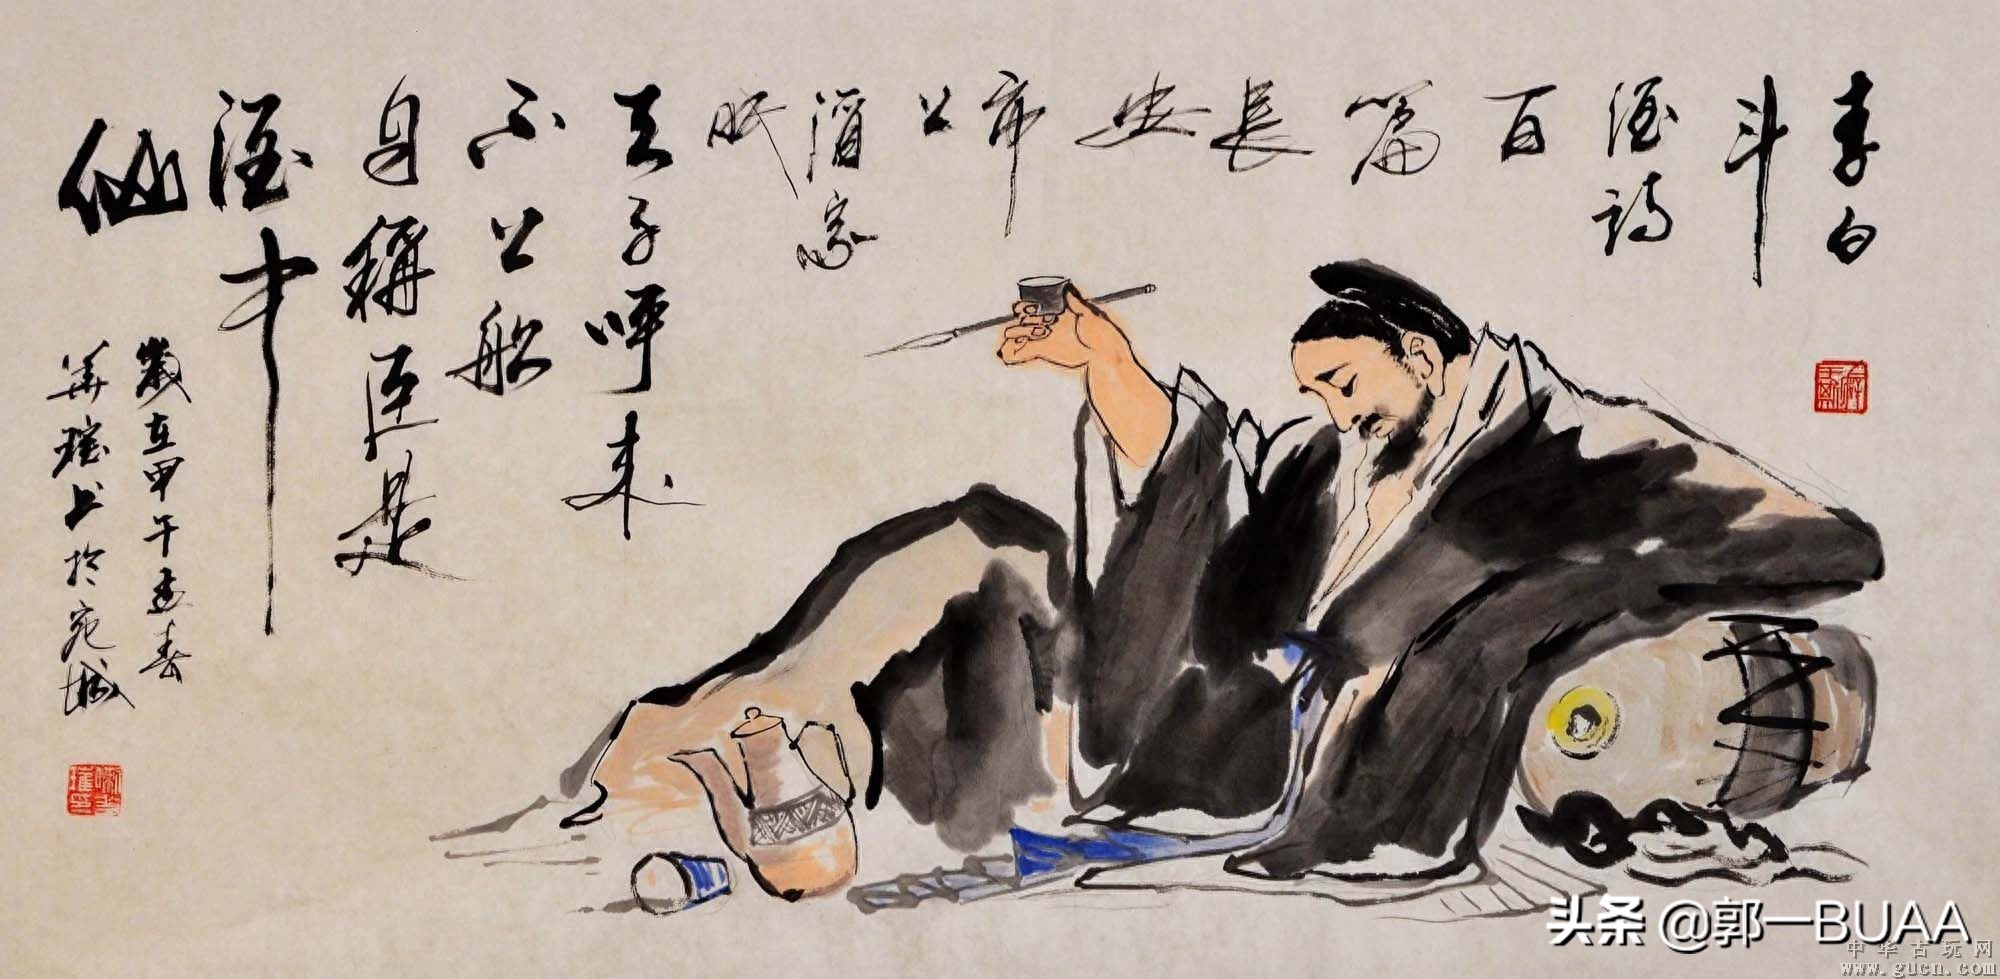 李白
斗
酒詩
百
篇
長
安
市
上
酒家
眠
天子呼来
不上船
自稱臣是
酒中
仙
歲在甲午春
於宛城
头条 @郭一BUAA
中华古玩网
www.gucn.com